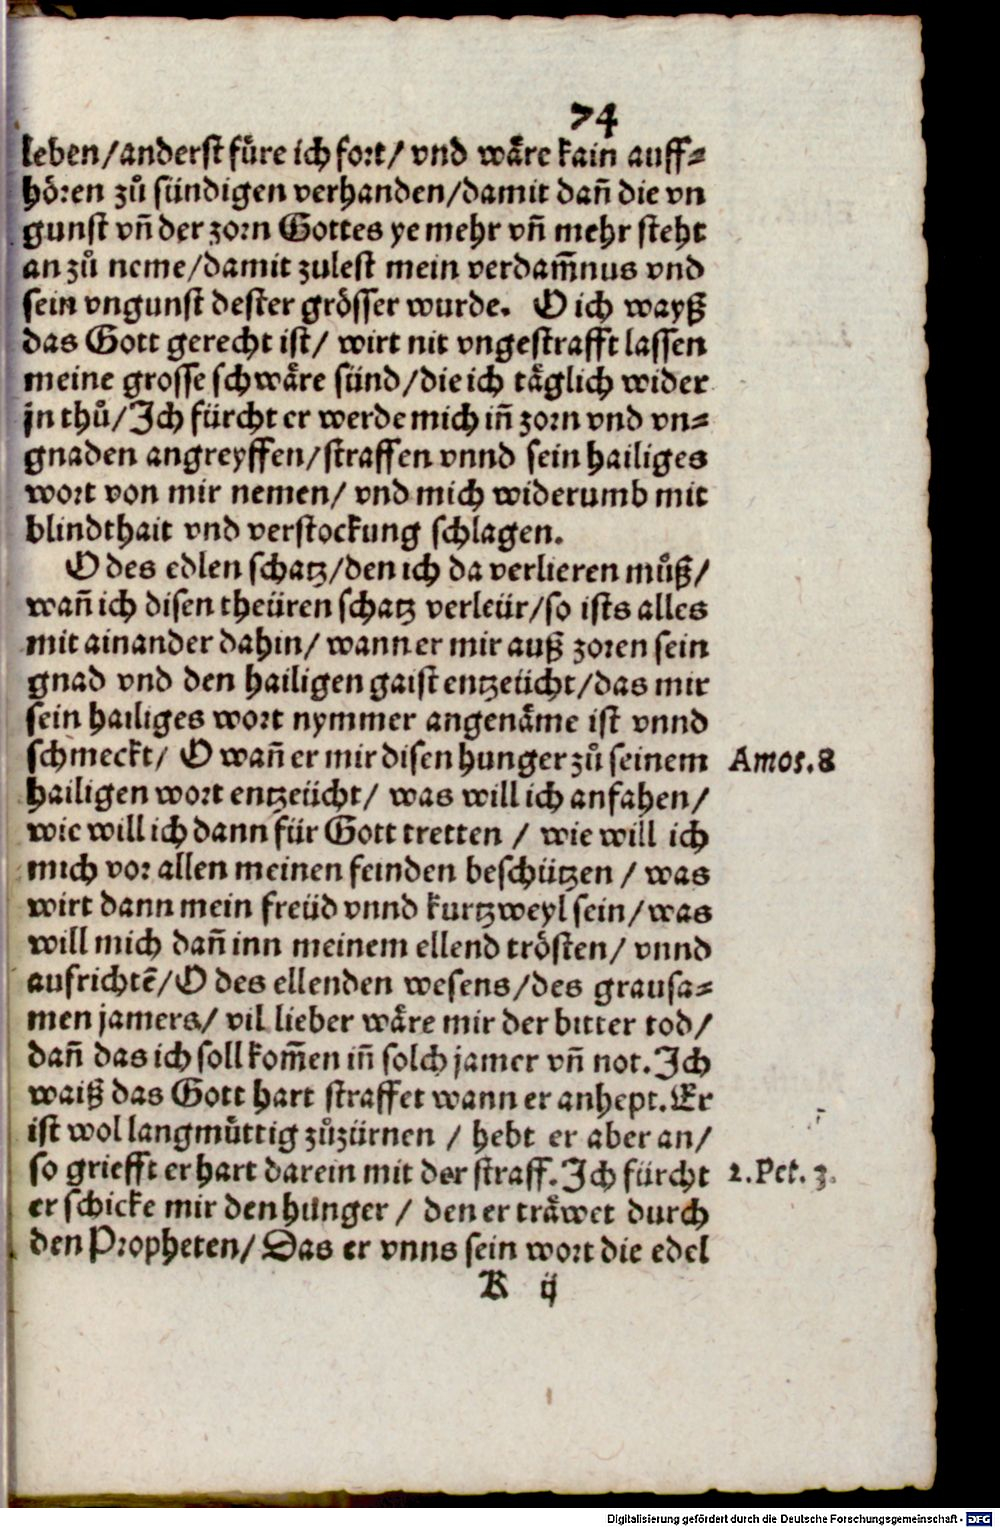 74
leben/anderst fůre ich fort/ vnd wåre kain auff⸗
hören zů sündigen verhanden/damit dañ die vn
gunst vñ der zorn Gottes ye mehr vñ mehr steht
an zů neme/damit zulest mein verdam̃nus vnd
sein vngunst dester grösser wurde. O ich wayß
das Gott gerecht ist/ wirt nit vngestrafft lassen
meine grosse schwåre sünd/die ich tåglich wider
jn thů/Ich fürcht er werde mich iñ zorn vnd vn⸗
gnaden angreyffen/straffen vnnd sein hailiges
wort von mir nemen/ vnd mich widerumb mit
blindthait vnd verstockung schlagen.
O des edlen schatz/den ich da verlieren můß/
wañ ich disen theüren schatz verleür/so ists alles
mit ainander dahin/ wann er mir auß zoren sein
gnad vnd den hailigen gaist entzeücht/das mir
sein hailiges wort nymmer angenåme ist vnnd
schmeckt/ O wañ er mir disen hunger zů seinem
Amos.8
hailigen wort entzeücht/ was will ich anfahen/
wie will ich dann für Gott tretten / wie will ich
mich vor allen meinen feinden beschützen / was
wirt dann mein freüd vnnd kurtzweyl sein/was
will mich dañ inn meinem ellend trösten/ vnnd
aufrichtẽ/O des ellenden wesens/des grausa⸗
men jamers/ vil lieber wåre mir der bitter tod/
dañ das ich soll kom̃en iñ solch jamer vñ not. Ich
waiß das Gott hart straffet wann er anhept. Er
ist wol langmůttig zůzürnen / hebt er aber an/
so griefft er hart darein mit der straff. Ich fürcht
2.Pet.3.
er schicke mir den hunger / den er tråwet durch
den Propheten/ Das er vnns sein wort die edel
K ij
Digitalisierung gefördert durch die Deutsche Forschungsgemeinschaft - DFG